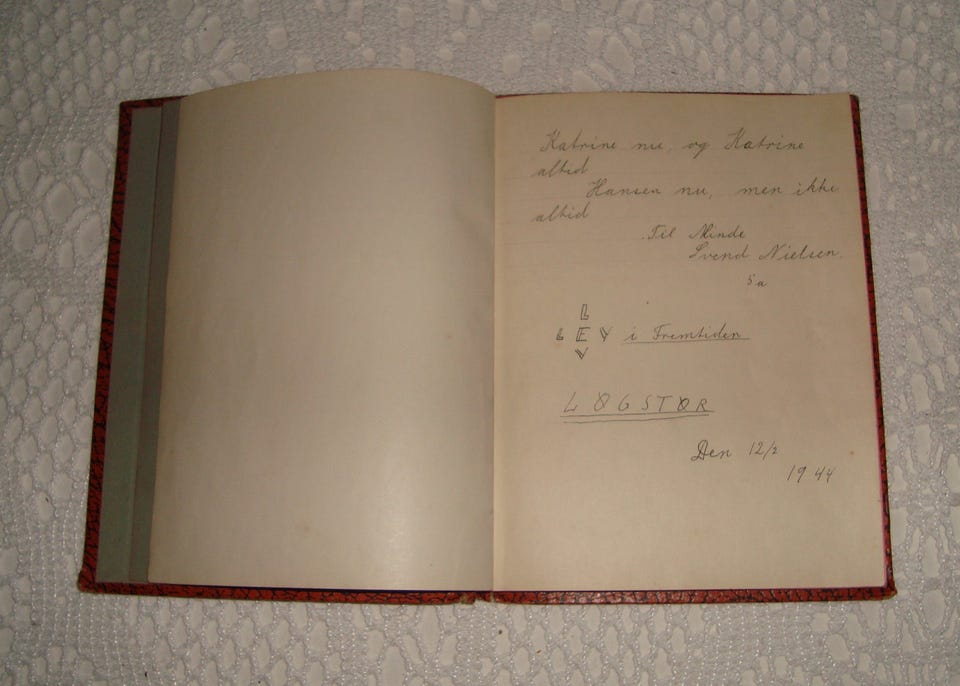 Katrine nu, og Katrine
altid
Hansen nu, men ikke
altid
Til Minde
Svend Nielsen.
5a
L
LEV i Fremtiden
V
LØGSTØR
Den 12/2
1944